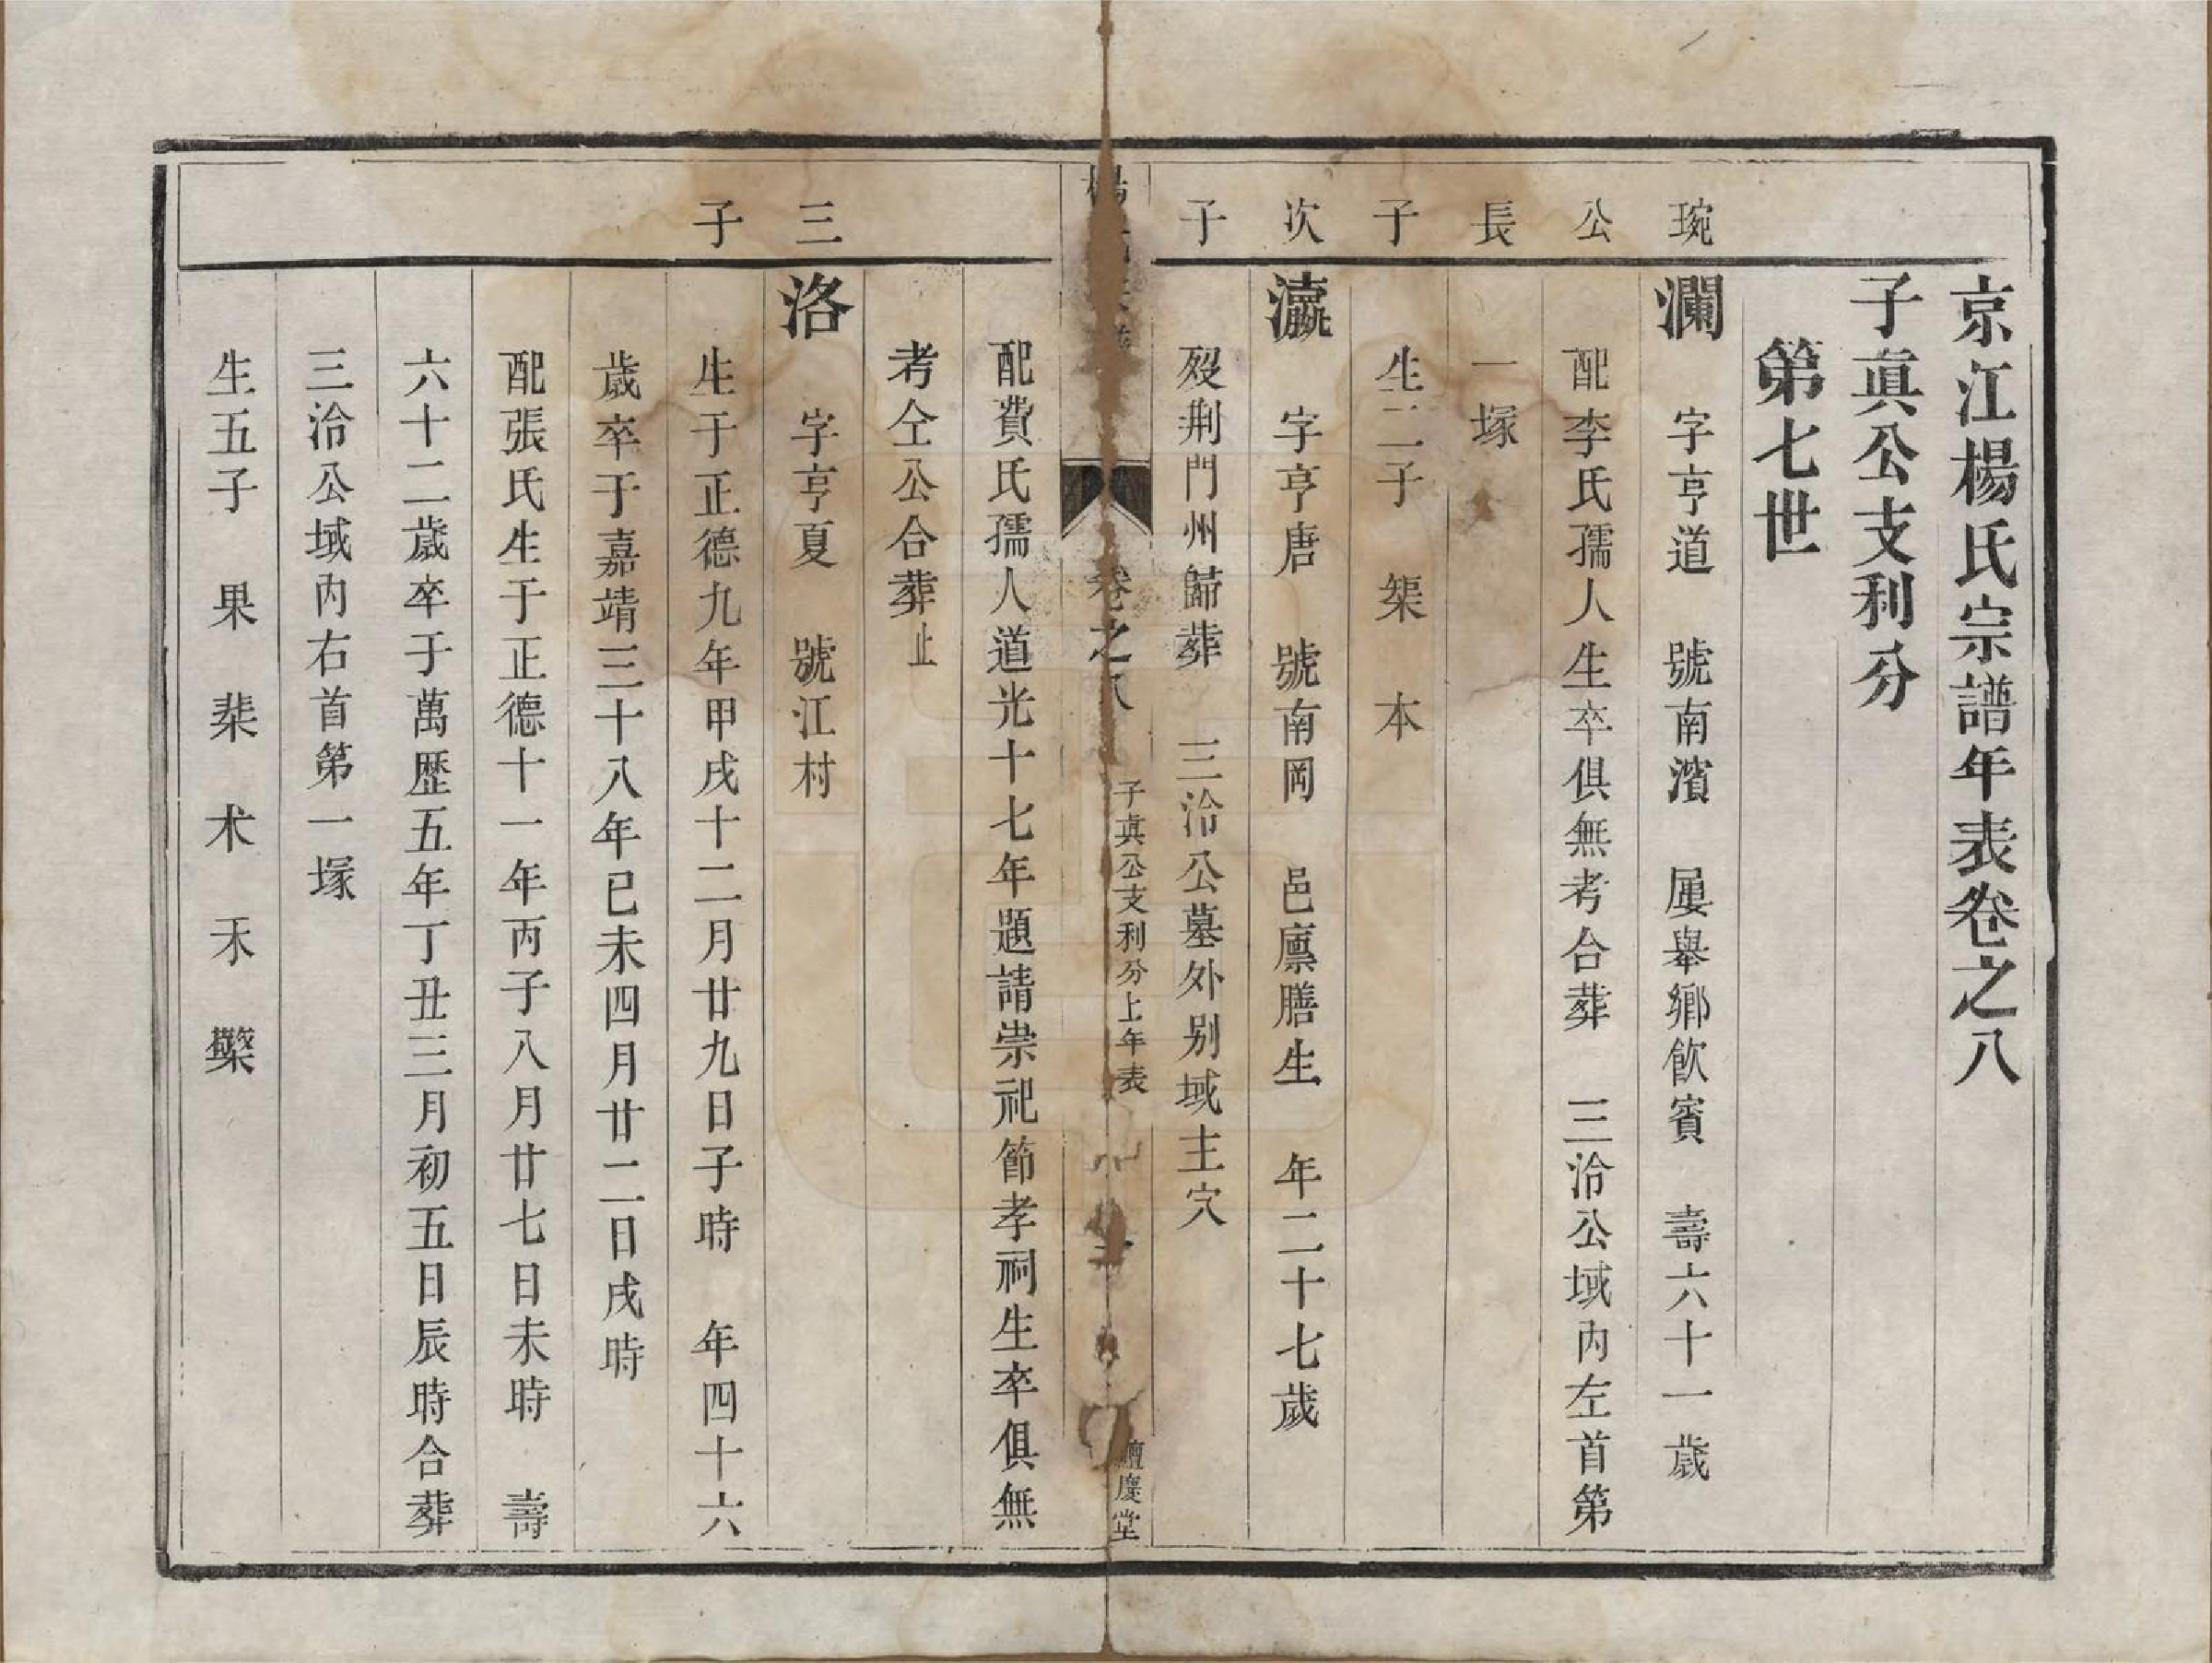 京江楊氏宗譜年表卷之八
子眞公支利分
第七世
琬公長子
瀾　字亨道　號南濱　屢舉鄉飲賓　壽六十一歲
配李氏孺人生卒俱無考合葬　三洽公域內左首第
一塚
生二子　榘　本
次子
瀛　字亨唐　號南岡　邑廩膳生　年二十七歲
歿荆門州歸葬　三洽公墓外别域主穴
卷之八　子眞公支利分上年表
慶堂
配費氏孺人道光十七年題請崇祀節孝祠生卒俱無
考仝公合葬止
三子
洛　字亨夏　號江村
生于正德九年甲戌十二月廿九日子時　年四十六
歲卒于嘉靖三十八年己未四月廿二日戌時
配張氏生于正德十一年丙子八月廿七日未時　壽
六十二歲卒于萬歷五年丁丑三月初五日辰時合葬
三洽公域內右首第一塚
生五子　果　棐　术　禾　檠